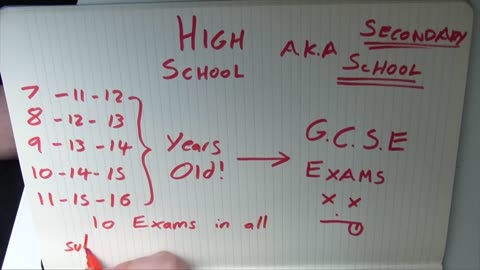 HIGH SCHOOL A.K.A SECONDARY SCHOOL
7 - 11 - 12
8 - 12 - 13
9 - 13 - 14
10 - 14 - 15
11 - 15 - 16
Years Old!
G.C.S.E
EXAMS
10 Exams in all